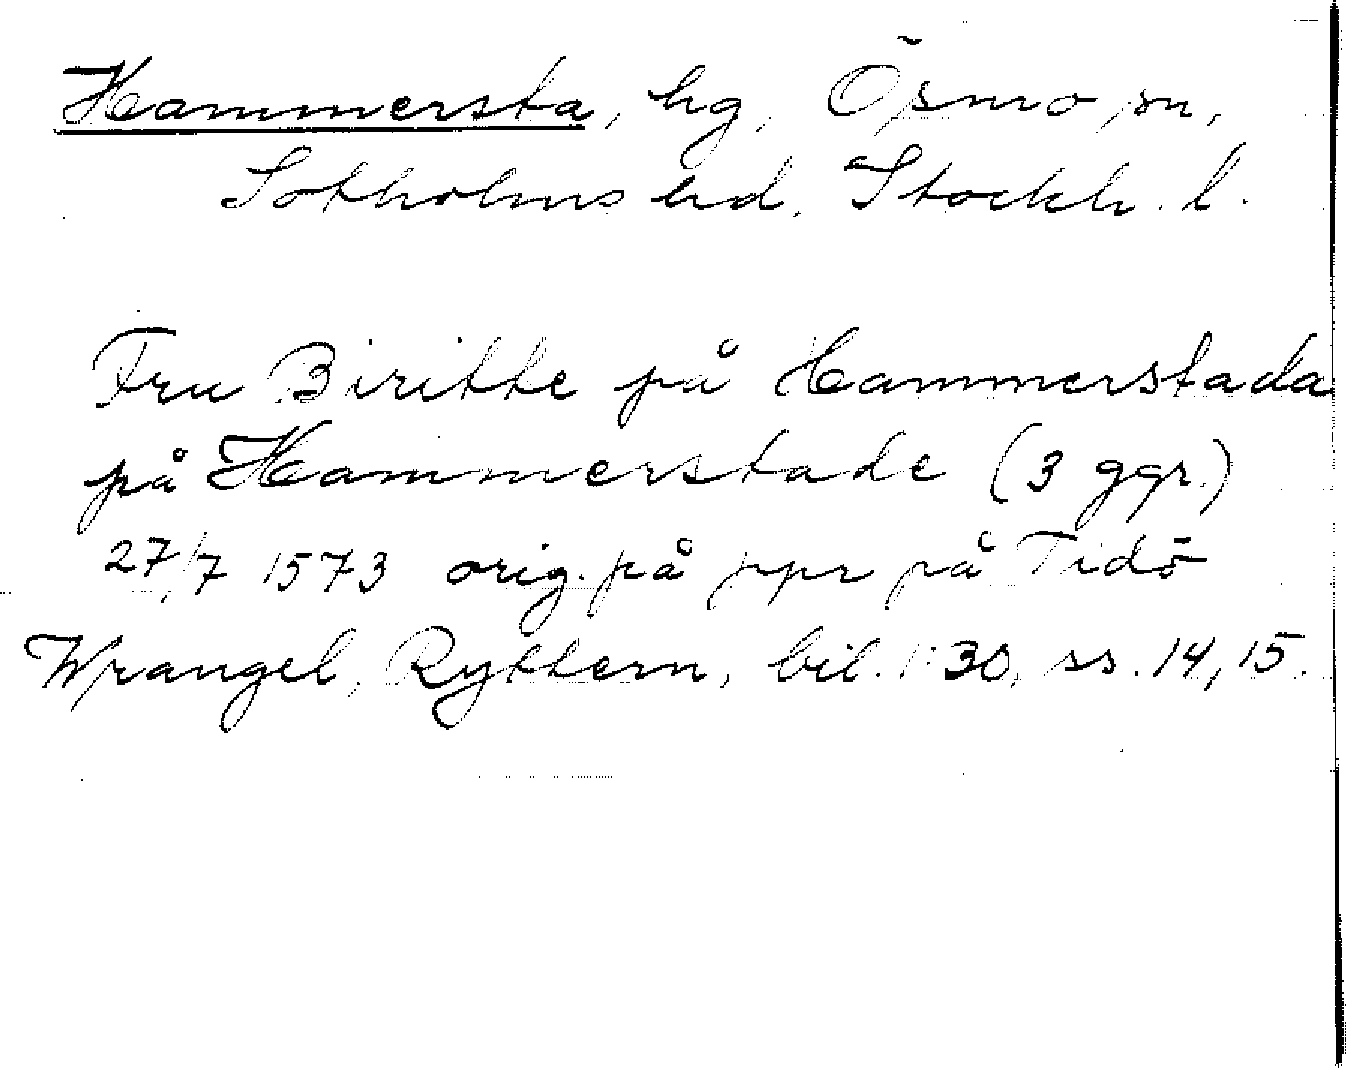 Hammersta, hg, Ösmo sn,
Sotholms hd. Stockh. l.
Fru Biritte på Hammerstada
på Hammerstade (3 ggr.)
27/7 1573 orig. på ppr på Tidö
Wrangel, Ryttern, bil. 1:30, ss. 14, 15.